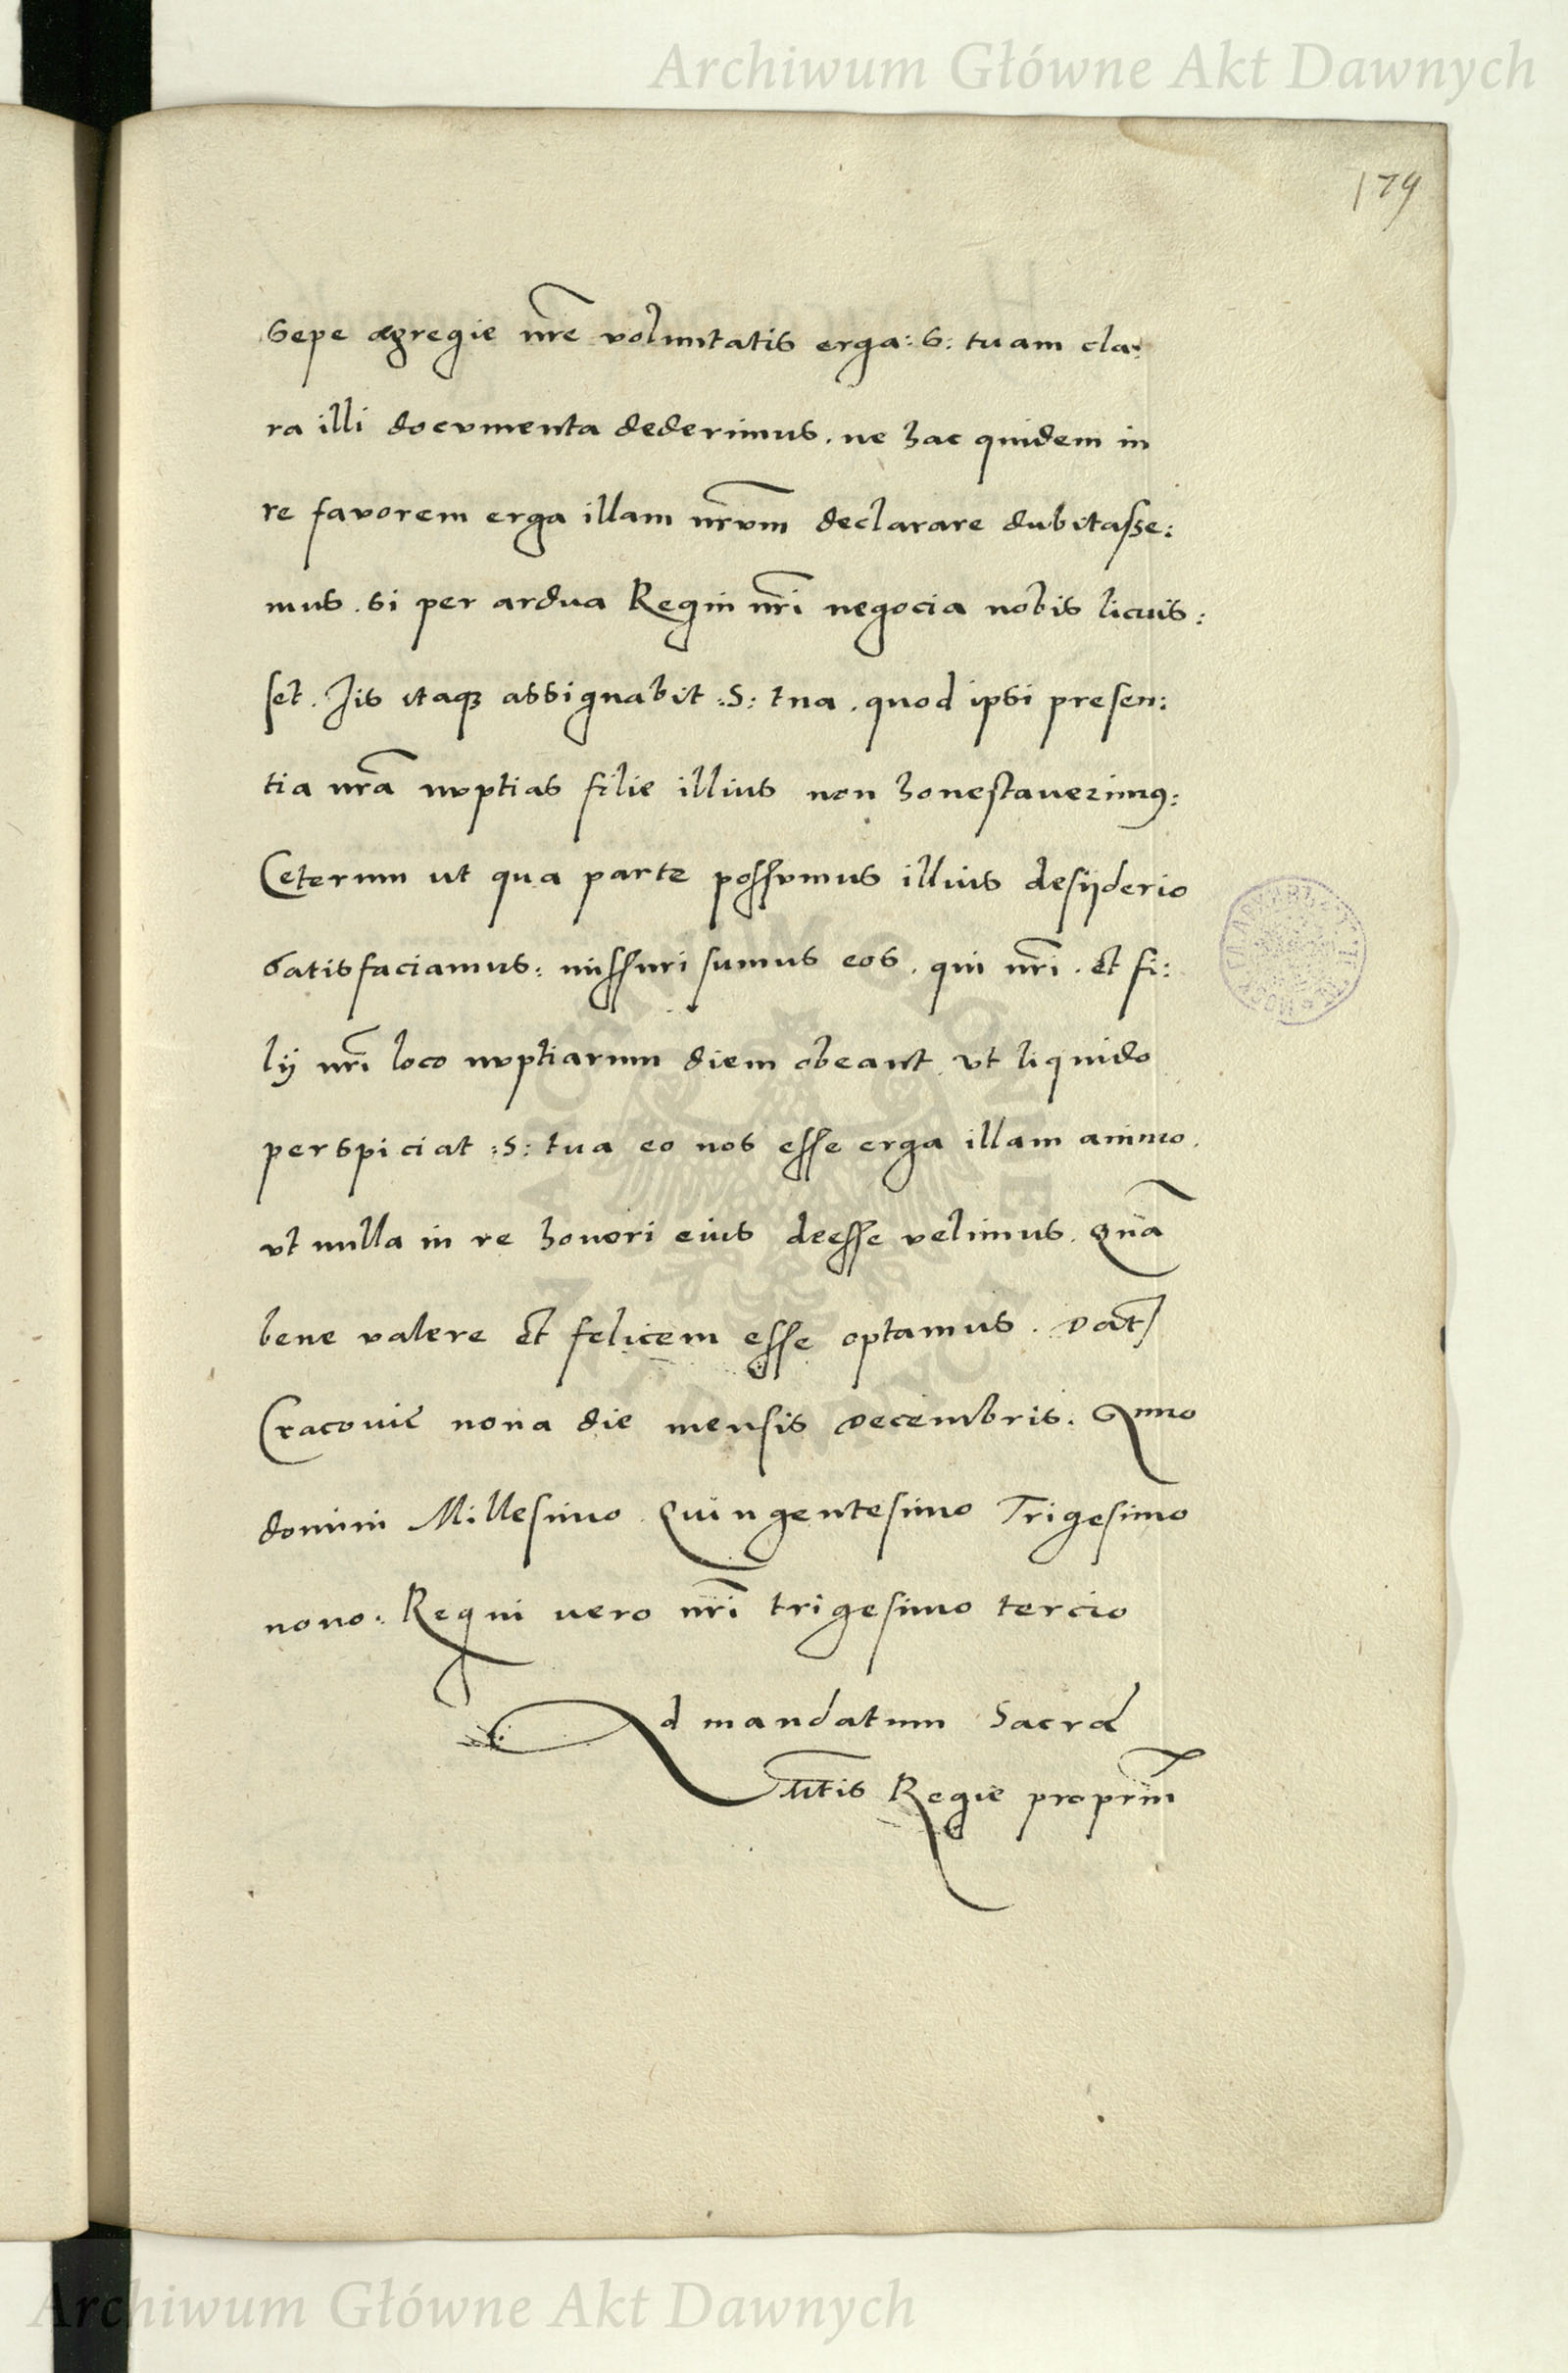 Archiwum Główne Akt Dawnych
179
Sepe ægregie nr̃e voluntatis erga: S: tuam cla:
ra illi documenta dederimus. ne hac quidem in
re favorem erga illam nr̃vm declarare dubitasse:
mus. si per ardua Regni nr̃i negocia nobis licuis:
set. Jis itaqꝫ assignabit :S: tua. quod ipsi presen:
tia nr̃a nvptias filie illius non honestauerimꝰ:
Ceterum ut qua parte possvmus illius desyderio
satisfaciamus: missuri sumus eos. qui nr̃i. et fi:
lij nr̃i loco nvptiarum diem obeant. vt liquido
perspiciat :S: tua eo nos esse erga illam animo.
vt nulla in re honori eius deesse velimus. Quã
bene valere et felicem esse optamus. Dat̃
Cracovię nona die mensis Decembris. Anno
domini Millesimo Quingentesimo Trigesimo
nono. Regni vero nr̃i trigesimo tercio
Ad mandatum Sacræ
Mt̃is Regie propriũ
ARCHIWUM GŁÓWNE
AKT DAWNYCH
Archiwum Główne Akt Dawnych